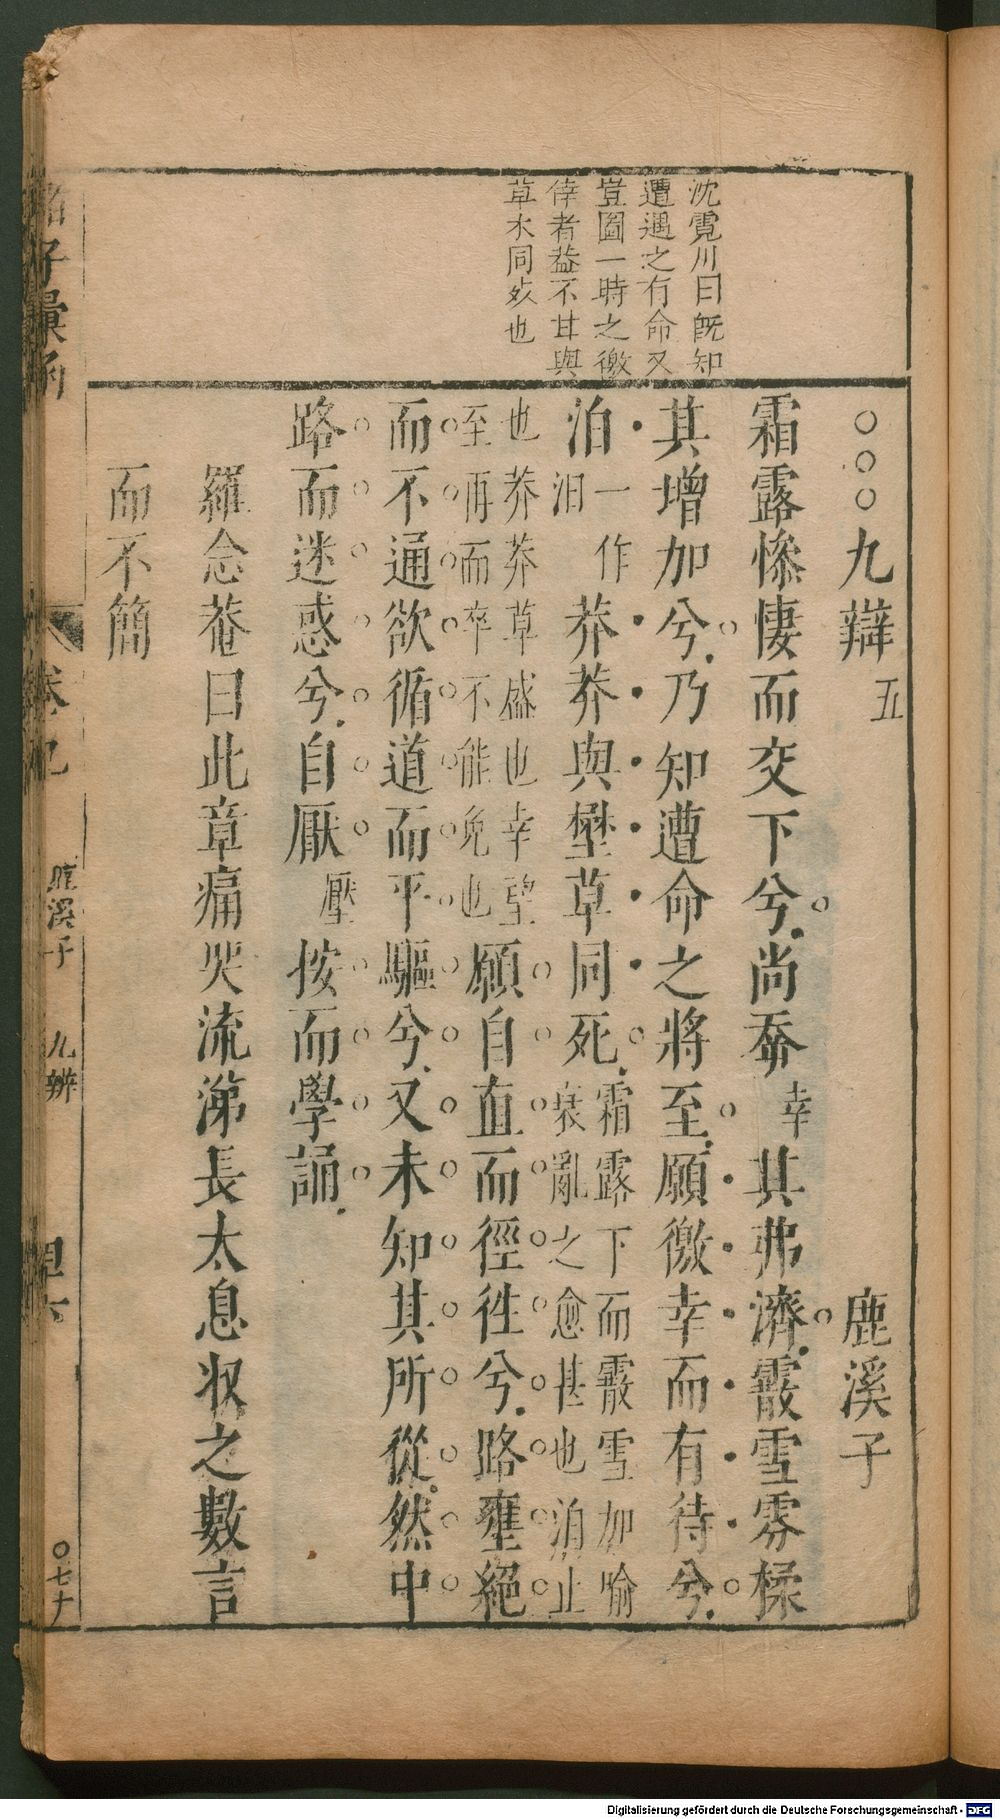 沈霓川曰旣知
遭遇之有命又
豈圖一時之徼
倖者益不甘與
草木同歿也
○○○九辯五　鹿溪子
霜露慘悽而交下兮尚𡴘幸其弗濟霰雪雰糅
其增加兮乃知遭命之將至願徼幸而有待兮
泊一作汩莽莽與壄草同死霜露下而霰雪加喻衰亂之愈甚也泊止
也莽莽草盛也幸望至再而卒不能免也願自直而徑徃兮路壅絕
而不通欲循道而平驅兮又未知其所從然中
路而迷惑兮自厭壓按而學誦
羅念菴曰此章痛哭流涕長太息收之數言
而不簡
彙函
鹿溪子
九辨